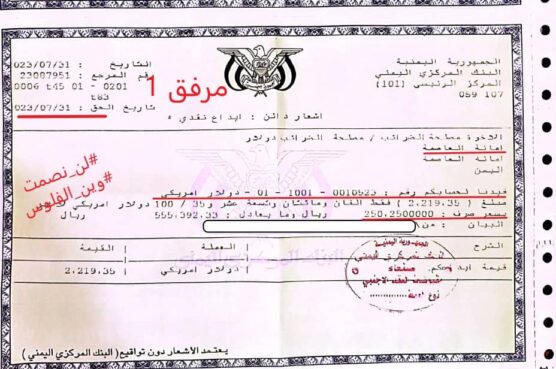 الجمهورية اليمنية
البنك المركزي اليمني
المركز الرئيسي (101)
059 107
التاريخ : 023/07/31
رقم المرجع : 23087951
0006 t45 01 - 0201
t83
تاريخ الحق : 023/07/31
مرفق 1
اشعار دائن : ايداع نقدي
الاخوة مصلحة الضرائب / مصلحة الضرائب دولار
امانة العاصمة
امانة العاصمة
اليمن
#لن_نصمت
#وين_الفلوس
قيدنا لحسابكم رقم : 0010523 - 1001 - 01 - دولار امريكي
مبلغ ( 2,219.35 ) فقط الفان ومائتان وتسعة عشر و35/ 100 دولار امريكي
بسعر صرف : 250.2500000 ريال وما يعادل : 555,392.33 ريال
البيان : من
الشرح | العملة | القيمة
قيمة | دولار امريكي | 2,219.35
البنك المركزي اليمني
صنعاء
يعتمد الأشعار دون تواقيع ( البنك المركزي اليمني )